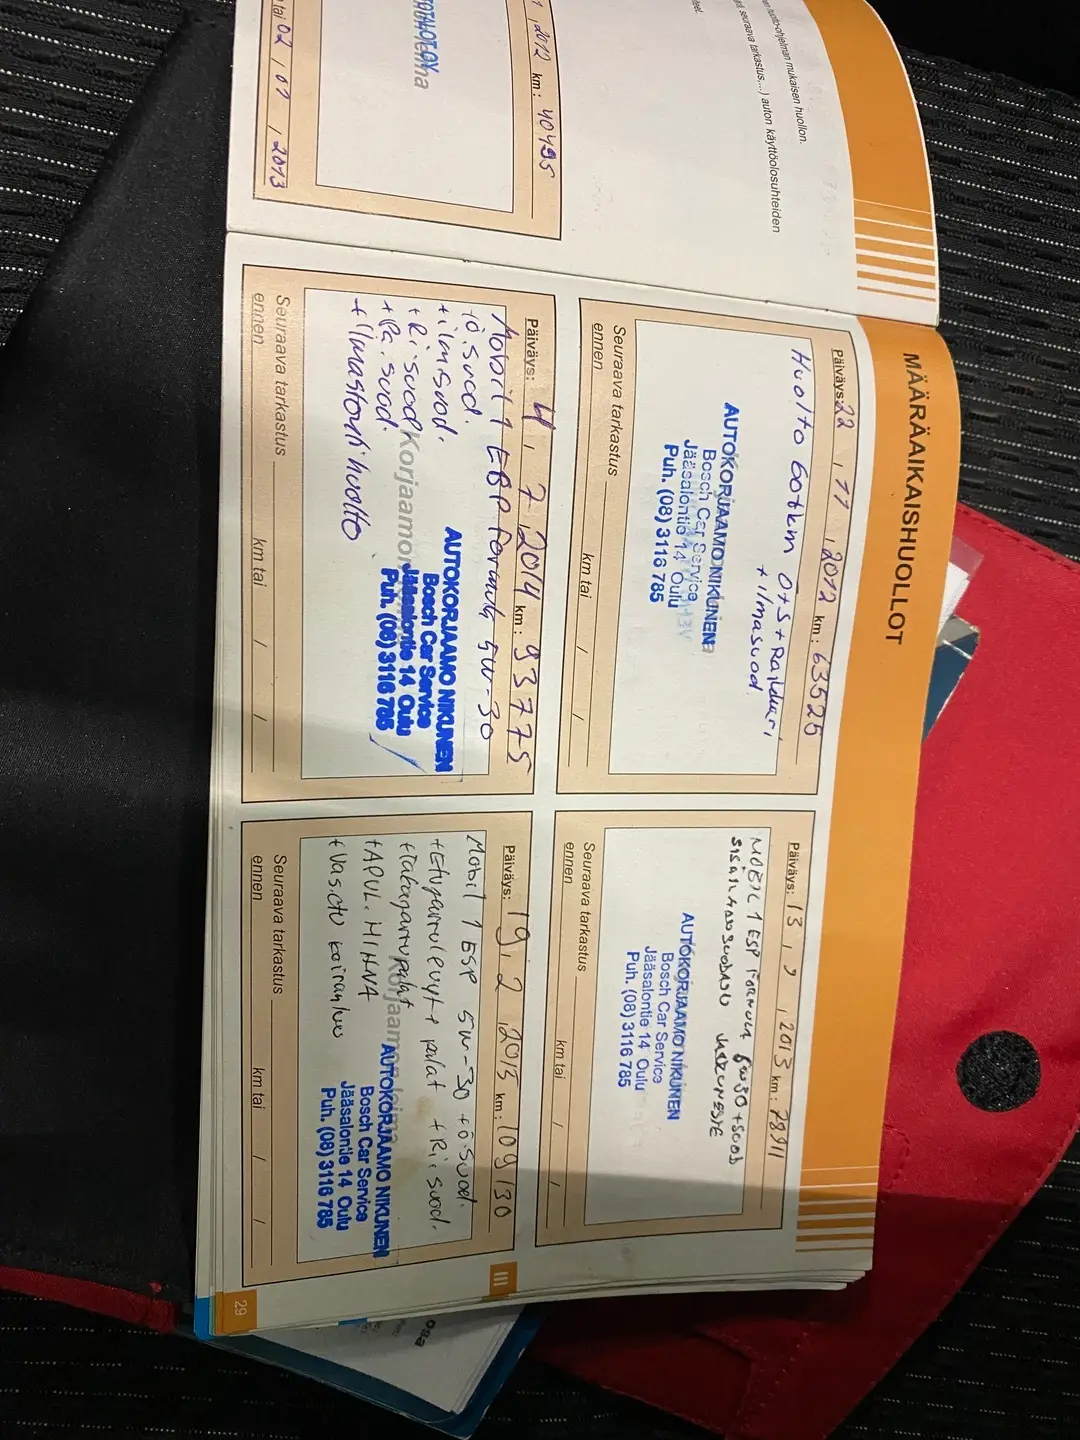 huolto-ohjelman mukaisen huollon.
seuraava tarkastus,...) auton käyttöolosuhteiden
2012 km: 40495
tai 02 / 07 / 2013
MÄÄRÄAIKAISHUOLLOT
Päiväys: 22 , 11 , 2012 km: 63525
Huolto 60tkm Ö+S+Raildúari
+ ilmasuod
AUTOKORJAAMO NIKUNEN
Bosch Car Service
Jääsalontie 14 Oulu
Puh. (08) 3116 785
Seuraava tarkastus km tai / /
ennen
Päiväys: 13 , 9 , 2013 km: 78911
MOBIL 1 ESP FORMULA 5W30 + SUOD
AUTOKORJAAMO NIKUNEN
Bosch Car Service
Jääsalontie 14 Oulu
Puh. (08) 3116 785
Seuraava tarkastus km tai / /
ennen
Päiväys: 4 , 7 , 2014 km: 93775
Mobil 1 ESP formula 5W-30
+ö.suod.
+ilm.suod.
+Ri.suod
+Pa.suod.
+Ilmastointihuolto
Korjaamon
AUTOKORJAAMO NIKUNEN
Bosch Car Service
Jääsalontie 14 Oulu
Puh. (08) 3116 785
Seuraava tarkastus km tai / /
ennen
Päiväys: 19 , 2 , 2015 km: 109130
Mobil 1 ESP 5W-30 +ö.suod.
+Etujarrulevyt + palat +Ri.suod.
+Takajarrupalat
+APUL.HIHNA
+Vasen
Korjaamon leima
AUTOKORJAAMO NIKUNEN
Bosch Car Service
Jääsalontie 14 Oulu
Puh. (08) 3116 785
Seuraava tarkastus km tai / /
ennen
III
29